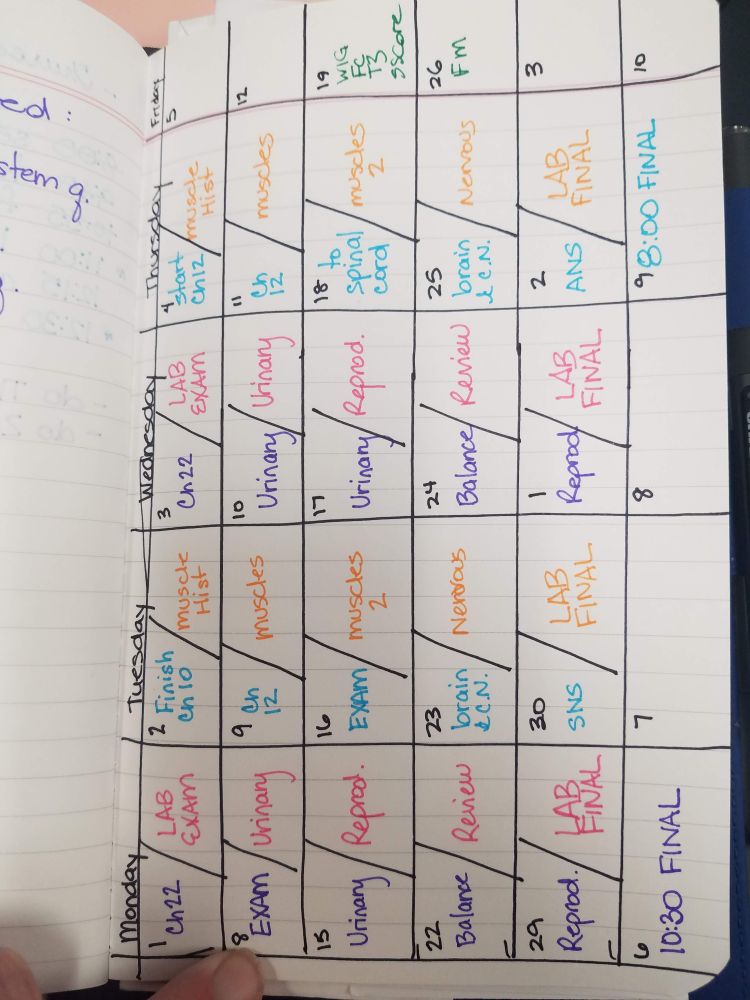 ed:
stem q.
Monday
Tuesday
Wednesday
Thursday
Friday
1
Ch22
LAB
EXAM
2
Finish
Ch 10
muscle
Hist
3
Ch22
LAB
EXAM
4
Start
Ch12
muscle
Hist
5
8
EXAM
Urinary
9
Ch
12
muscles
10
Urinary
Urinary
11
Ch
12
muscles
12
15
Urinary
Reprod.
16
EXAM
muscles
2
17
Urinary
Reprod.
18
to
spinal
cord
muscles
2
19
WIG
FC
T3
SScore
22
Balance
Review
23
brain
& C.N.
Nervous
24
Balance
Review
25
brain
& C.N.
Nervous
26
Fm
29
Reprod.
LAB
FINAL
30
SNS
LAB
FINAL
1
Reprod
LAB
FINAL
2
ANS
LAB
FINAL
3
6
10:30 FINAL
7
8
9
8:00 FINAL
10